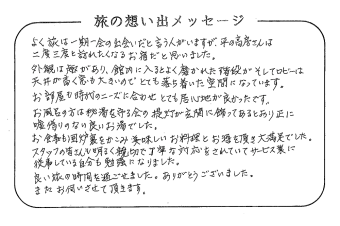 旅の想い出メッセージ
よく旅は一期一会の出会いだと言う人がいますが、平の高房さんは
二度三度と訪れたくなるお宿だと思いました。
外観は趣があり、館内に入るとよく磨かれた階段がそしてロビーは
天井が高く窓も大きいのでとても落ち着いた空間になっています。
お部屋も時代のニーズに合わせとても居心地が良かったです。
お風呂の方は秘湯を守る会の提灯が玄関に飾ってあるとおり正に
嘘偽りのない良いお湯でした。
お食事も囲炉裏をかこみ美味しいお料理とお酒を頂き大満足でした。
スタッフの皆さんも明るく親切で丁寧な対応をされていてサービス業に
従事している自分も勉強になりました。
良い旅の時間を過ごせました。ありがとうございました。
またお伺いさせて頂きます。